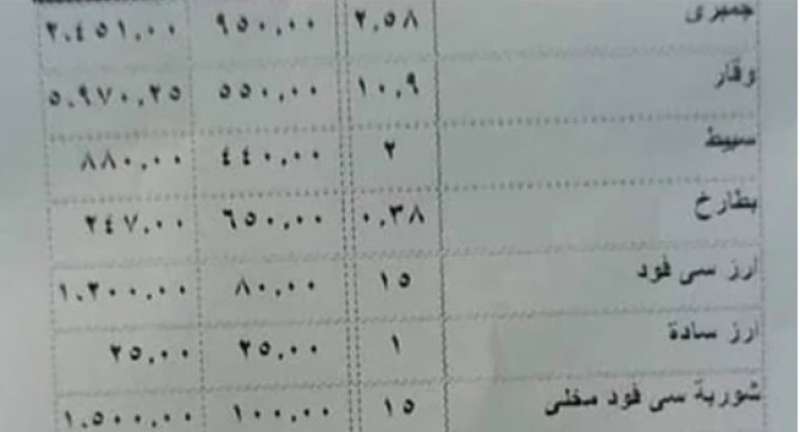 جمبرى ٢,٥٨ ٩٥٠,٠٠ ٢,٤٥١,٠٠
وقار ١٠,٩ ٥٥٠,٠٠ ٥,٩٧٠,٢٥
سبيط ٢ ٤٤٠,٠٠ ٨٨٠,٠٠
بطارخ ٠,٣٨ ٦٥٠,٠٠ ٢٤٧,٠٠
ارز سى فود ١٥ ٨٠,٠٠ ١,٢٠٠,٠٠
ارز سادة ١ ٢٥,٠٠ ٢٥,٠٠
شوربة سى فود مخلى ١٥ ١٠٠,٠٠ ١,٥٠٠,٠٠